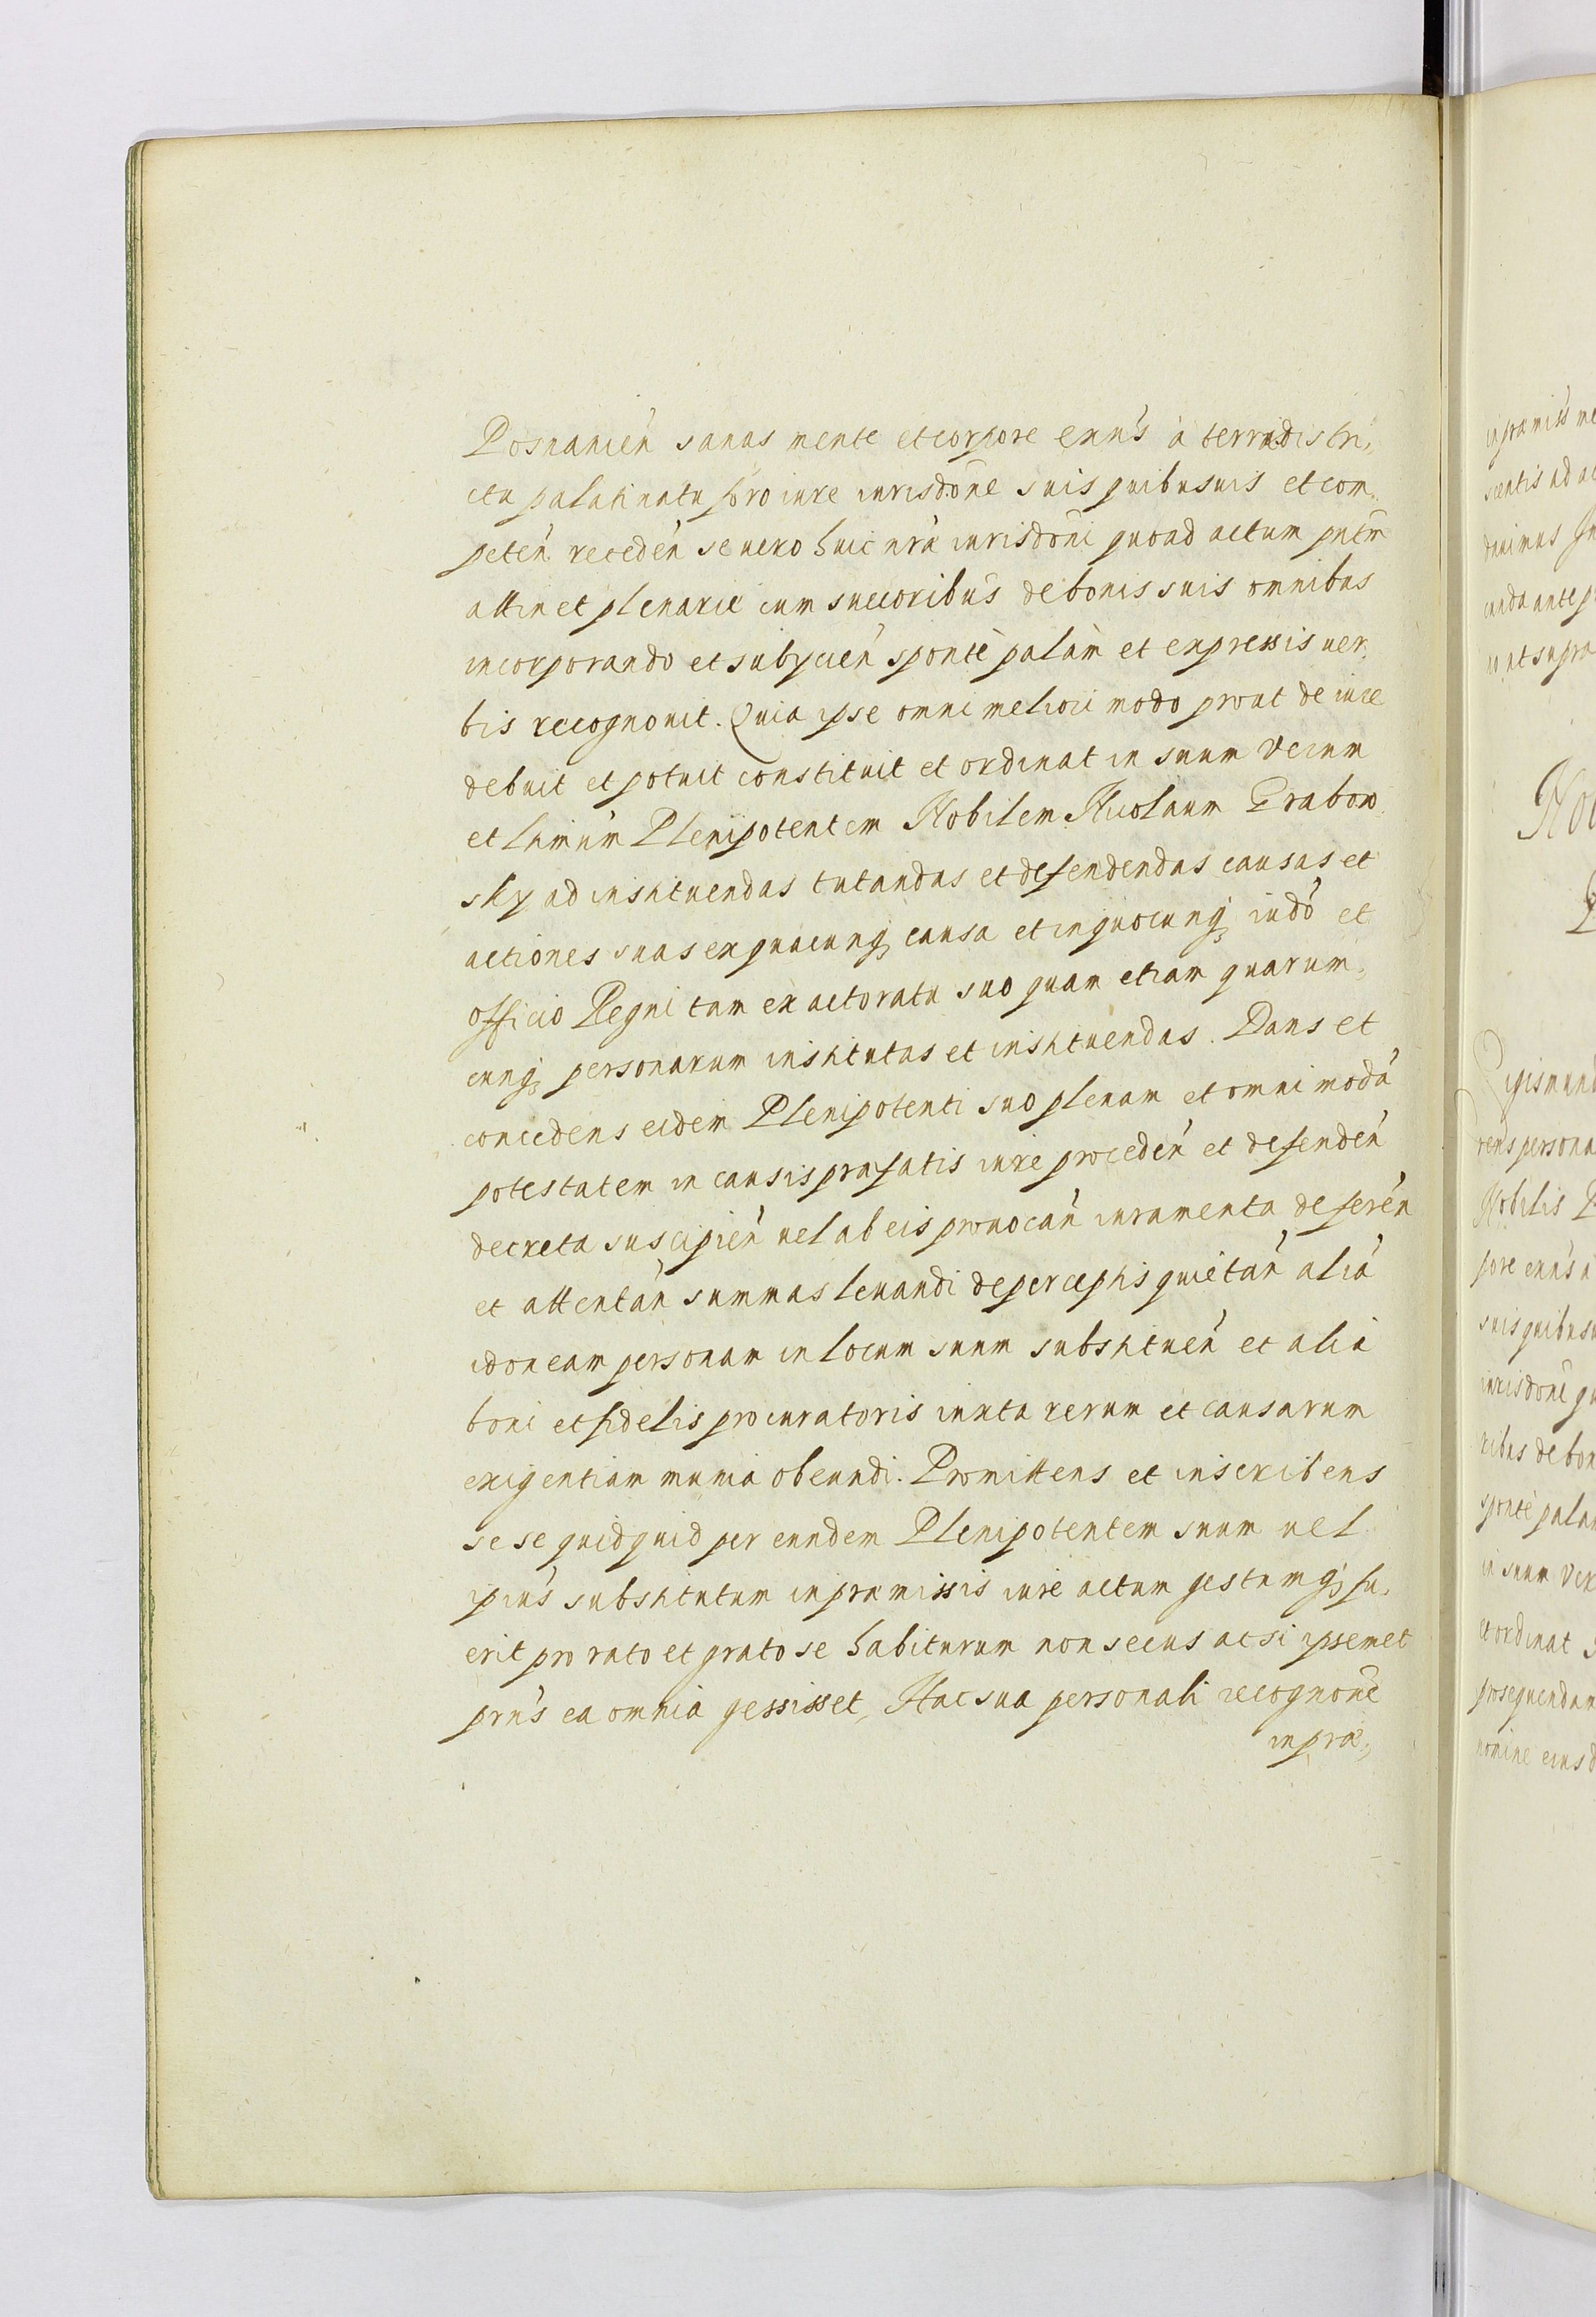 Posnanień sanas mente et corpore exńs à terra distri,
ctu palatinatu foro iure iurisdōne suis quibusuis et com,
peteń recedeń se uero huic nrã iurisdōni quoad actum pntm̃
attinet plenarie cum succoribus de bonis suis omnibus
incorporando et subycień spontè palàm et expressis uer,
bis recognouit. Quia ipse omni meliori modo prout de iure
debuit et potuit constituit et ordinat in suum Verum
et Ltimum Plenipotentem Nobilem Nicolaum Grabow
sky ad instituendas tutandas et defendendas causas et
actiones suas ex quacunq; causa et in quocunq; iudō et
officio Regni tam ex actoratu suo quam etiam quarum,
cunq; personarum institutas et instituendas. Dans et
concedens eidem Plenipotenti suo plenam et omnimodá
potestatem in causis præfatis iure procedeń et defendeń
decreta suscipień uel ab eis prouocań iuramenta defereń
et attentań summas leuandi de perceptis quietań aliá
idoneam personam in locum suum substitueń et alia
boni et fidelis procuratoris iuxta rerum et causarum
exigentiam munia obeundi. Promittens et inscribens
se se quidquid per eundem Plenipotentem suum uel
ipius substitutum in præmissis iure actum gestumq; fu,
erit pro rato et grato se habiturum non secus ac si ipsemet
prńs ea omnia gessisset, Hac sua personali recognōne
in præ,
in præmiss
scentis ad
cunda ante
ut supra
Sigismund
rens persona
Nobilis
pore exńs
suis quibus
iurisdōne
ribus de bon
spontè palam
in suum Ver
et ordinat
prosequendam
nomine eius